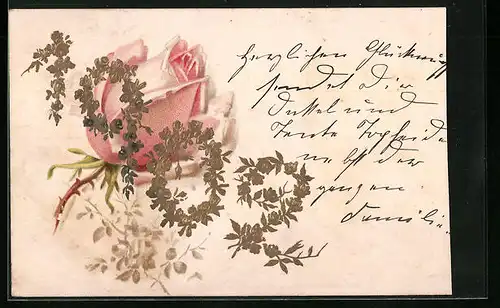 Herzlichen Glückwunsch
sendet Dir
Onkel und
Tante
nebst der
ganzen
Familie